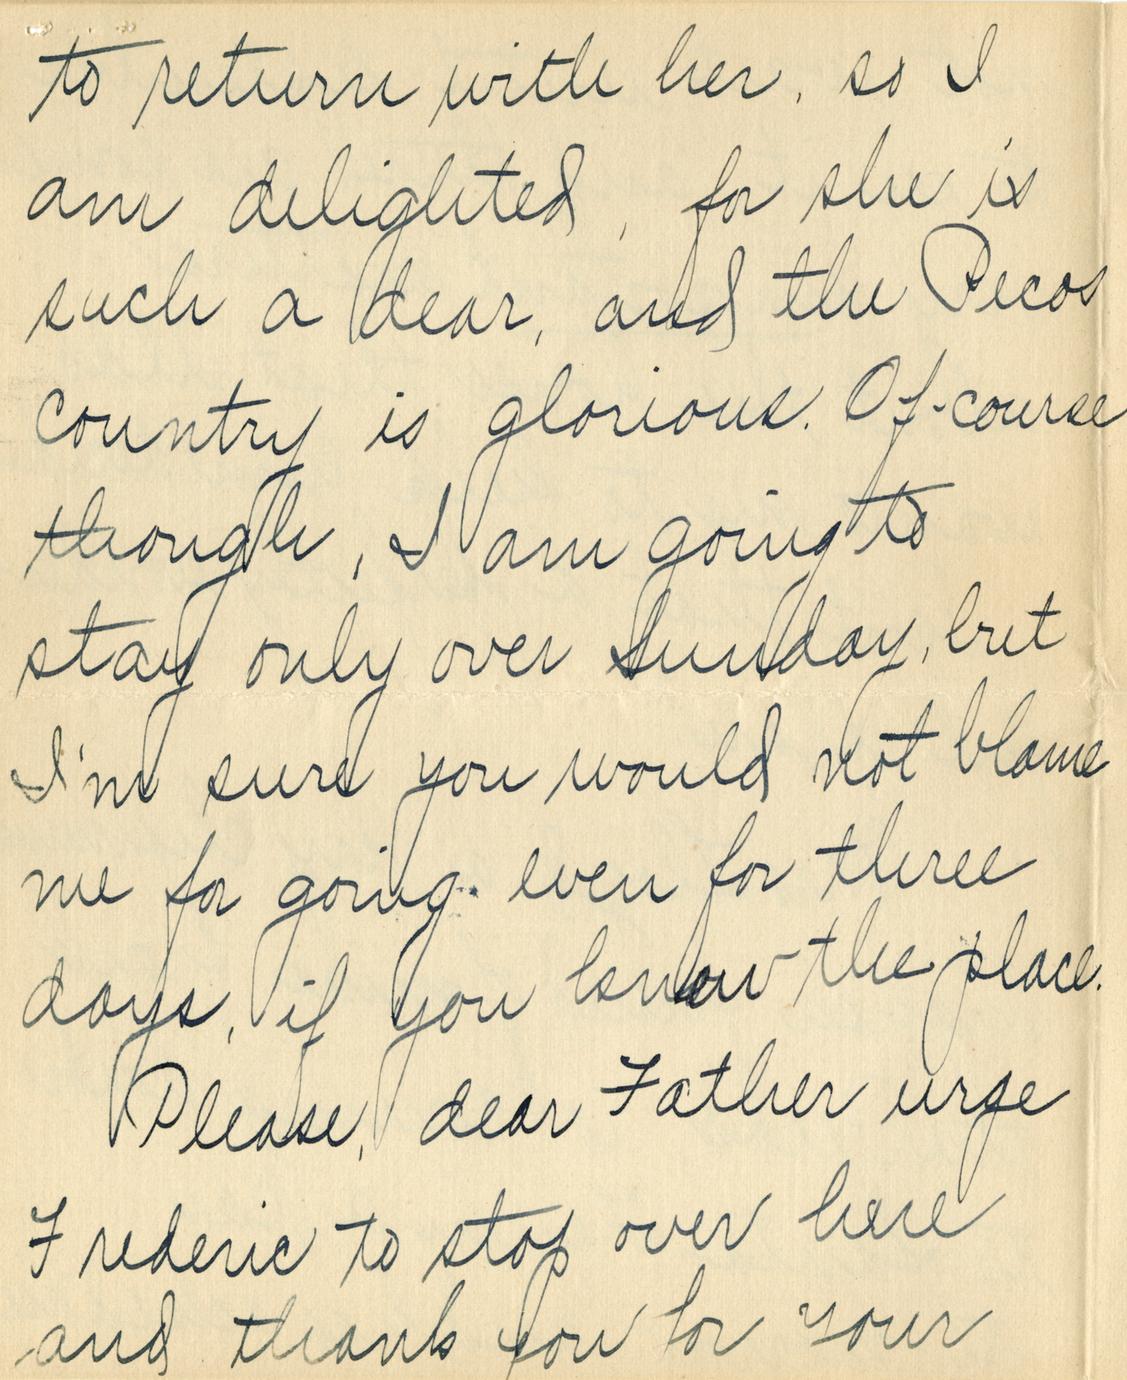 to return with her, so I
am delighted, for she is
such a dear, and the Pecos
country is glorious. Of-course
though, I am going to
stay only over Sunday, but
I'm sure you would not blame
me for going. even for three
days, if you know the place.
Please, dear Father urge
Frederic to stop over here
and thank you for your